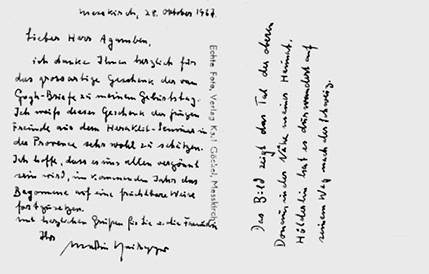 Messkirch, 28. Oktober 1967.
Lieber Herr Agamben,
ich danke Ihnen herzlich für
das grossartige Geschenk der van
Gogh-Briefe zu meinem Geburtstag.
Ich weiß dieses Geschenk der jungen
Freunde aus dem Heraklit-Seminar in
der Provence sehr wohl zu schätzen.
Ich hoffe, dass es uns allen vergönnt
sein wird, im kommenden Jahr das
Begonnene auf eine fruchtbare Weise
fortzusetzen.
mit herzlichen Grüßen für Sie u. die Freunde
Ihr
Martin Heidegger
Echte Foto, Verlag Karl Göckel, Messkirch
Das Bild zeigt das Tal der oberen
Donau, in der Nähe meiner Heimat.
Hölderlin hat es durchwandert auf
seinem Weg nach der Schweiz.